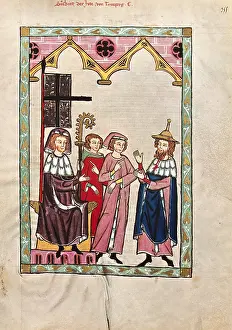 Süskint der Jude von Trimperg.
355